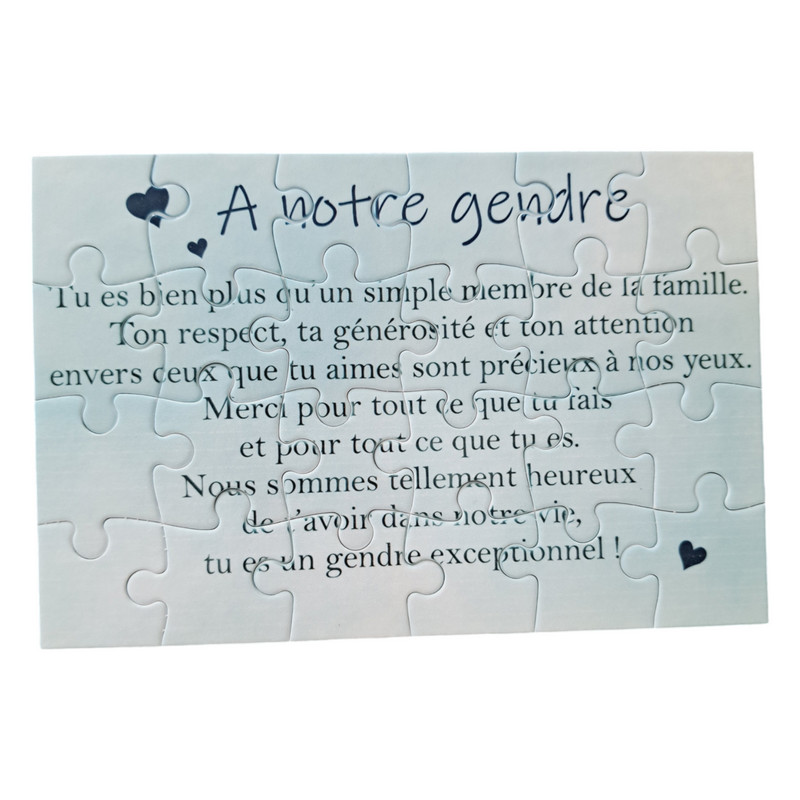 A notre gendre
Tu es bien plus qu'un simple membre de la famille.
Ton respect, ta générosité et ton attention
envers ceux que tu aimes sont précieux à nos yeux.
Merci pour tout ce que tu fais
et pour tout ce que tu es.
Nous sommes tellement heureux
de t'avoir dans notre vie,
tu es un gendre exceptionnel !